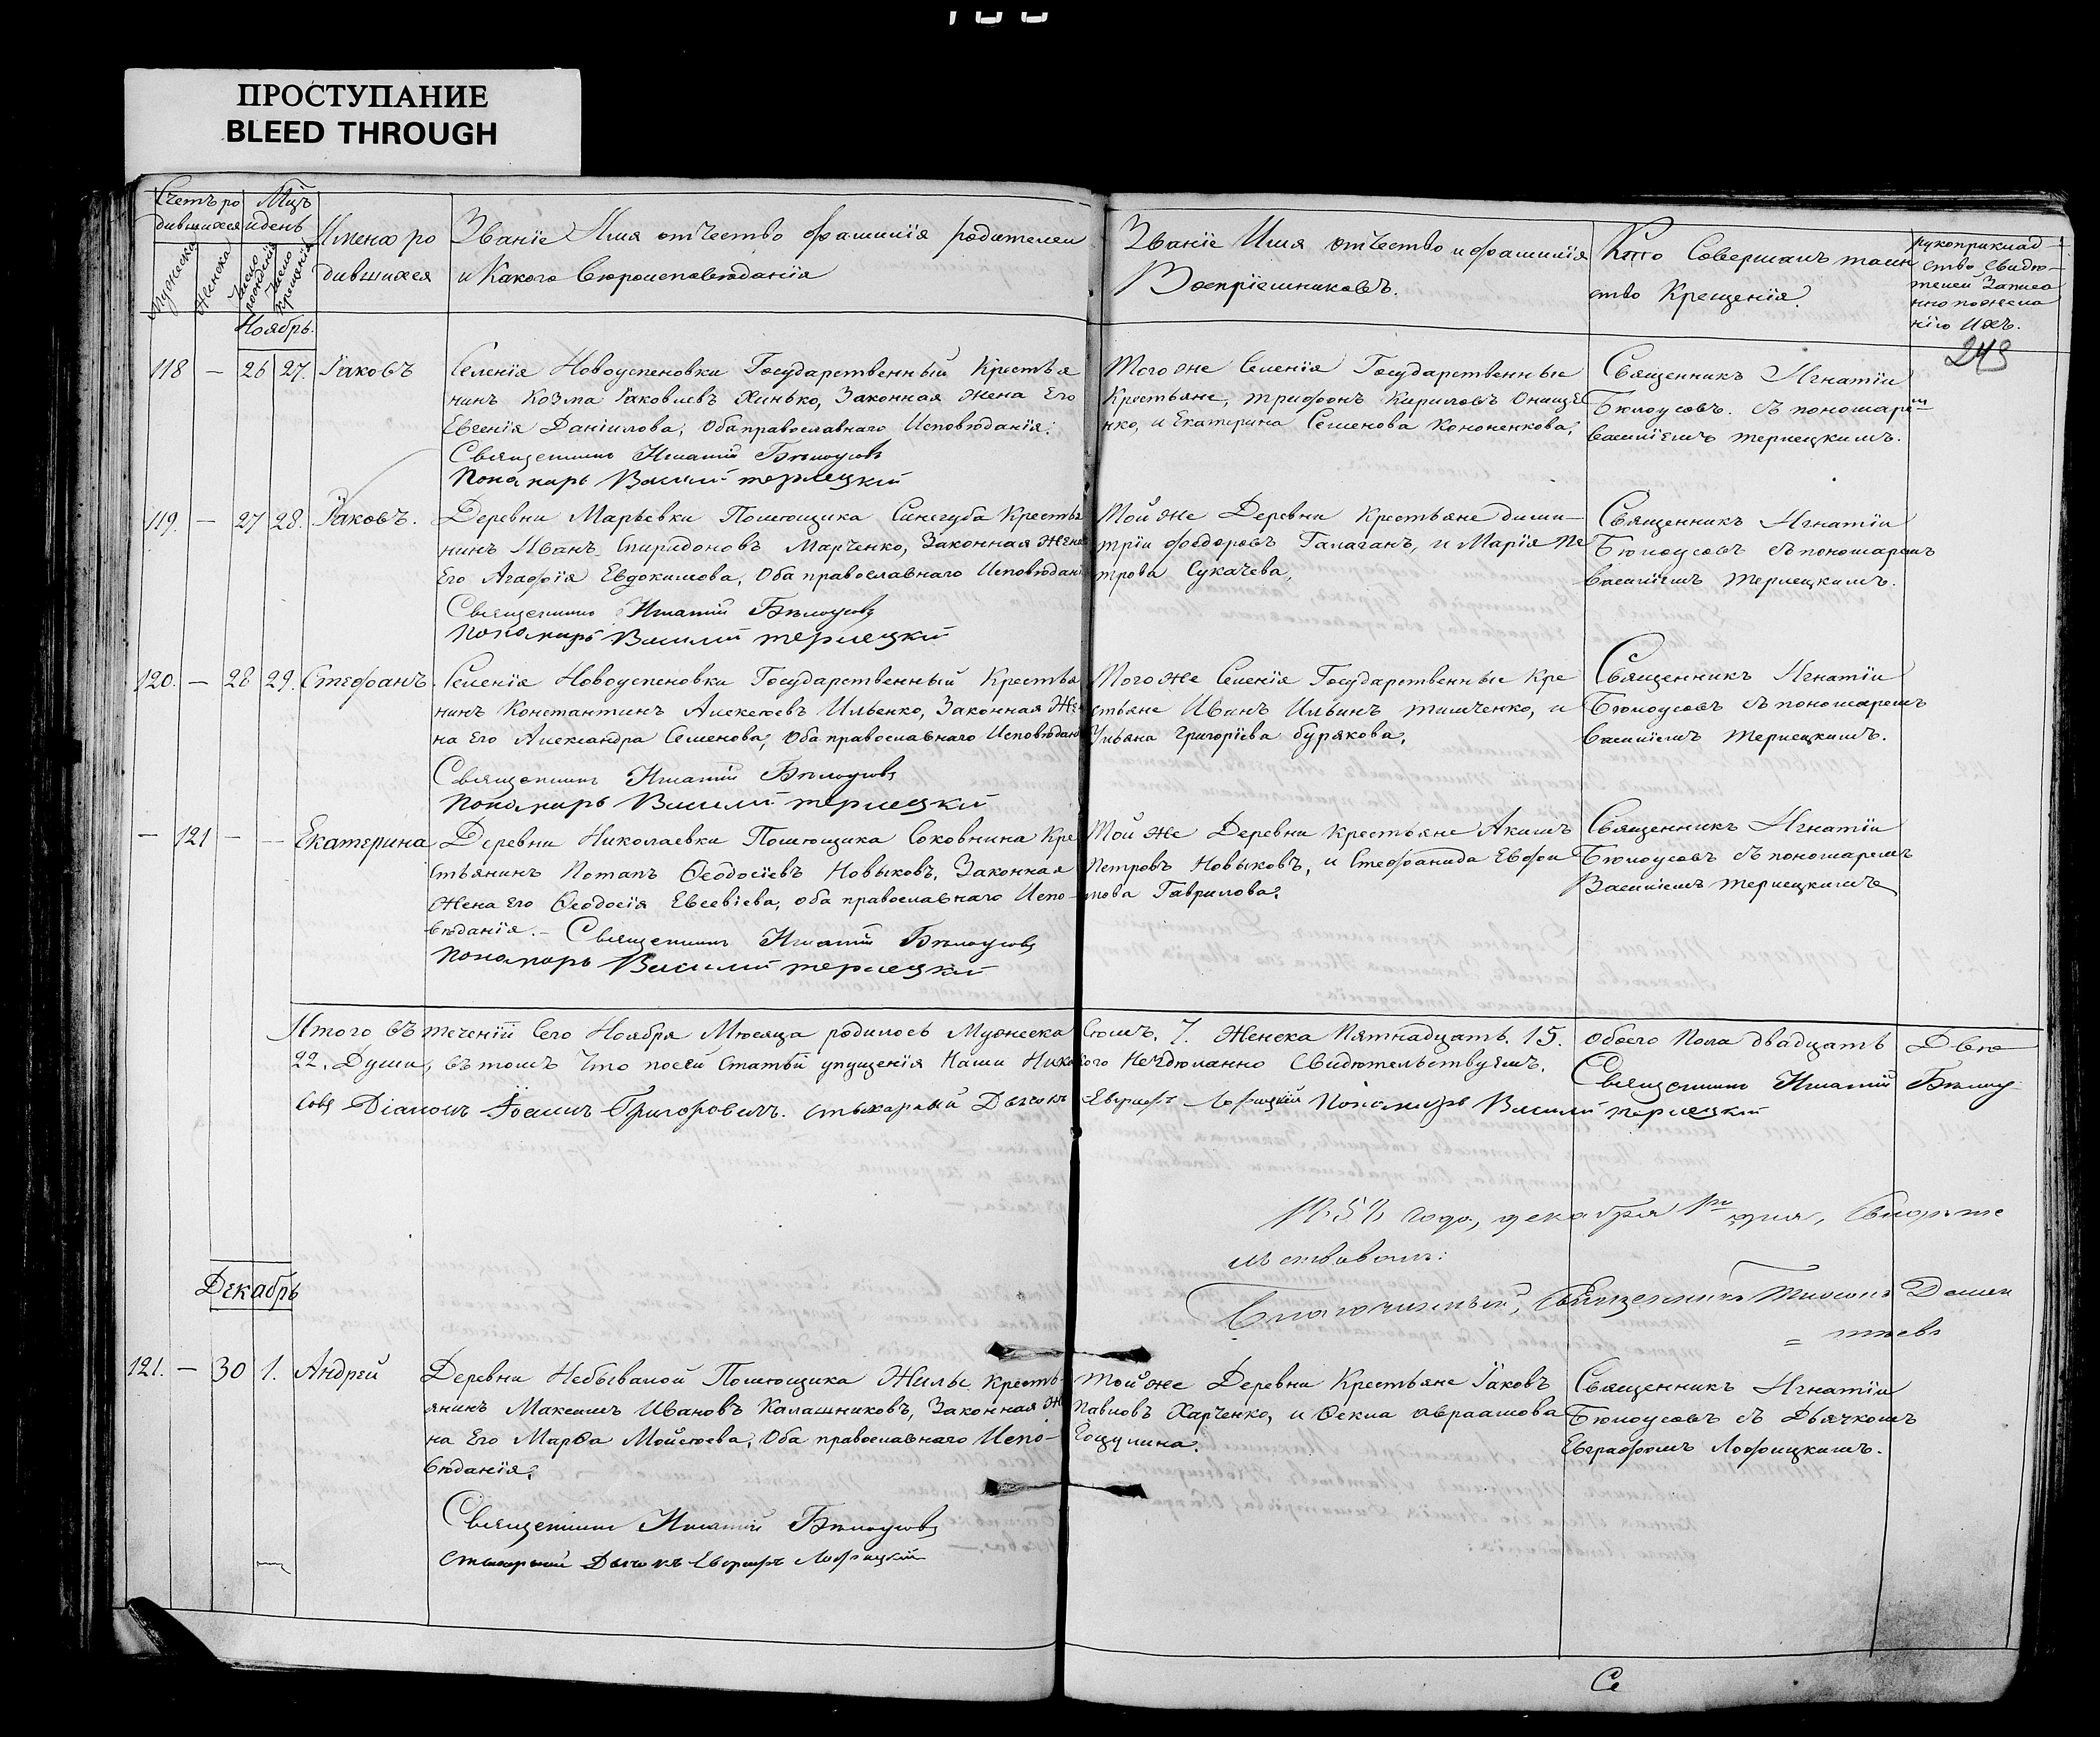 ПРОСТУПАНИЕ
BLEED THROUGH
Счетъ ро
дившихся
Мцъ
и день
Мужеска
Женска
Число рожденія
Число крещенія
Имена ро
дившихся
Званіе Имя отчество фамилія родителей
и Какого Вѣроисповѣданія
Званіе Имя отчество и фамилія
Воспріемниковъ.
Кто Совершалъ таин
ство Крещенія.
рукоприклад
ство Свидѣ
телей Записа
нно по жела
нію Ихъ.
249
Ноябрь.
118 — 26 27. Іаковъ
Селенія Новоуспеновки Государственный Крестья
нинъ Козма Іаковлевъ Хинько, Законная жена Его
Евгенія Даніилова, Оба православнаго Исповѣданія.
Священникъ Игнатій Бѣлоусовъ
Пономарь Василий терлецкий
Того же Селенія Государственные
Крестьяне, трифонъ Кириловъ Онище
нко, и Екатерина Семенова Кононенкова,
Священникъ Игнатіи
Бѣлоусовъ. съ пономаремъ
Василіемъ терлецкимъ.
119. — 27 28. Іаковъ.
Деревни Марьевки Помѣщика Синегуба Крестья
нинъ Иванъ Спиридоновъ Марченко, Законная Жена
Его Агафія Евдокимова, Оба православнаго Исповѣдані
Священникъ Игнатій Бѣлоусовъ
Пономарь Василий терлецкий
Той же Деревни Крестьяне дими-
трїи федоровъ Галаганъ, и Марія Пе
трова Сукачева,
Священникъ Игнатіи
Бѣлоусовъ съ пономаремъ
Василіемъ терлецкимъ.
120. — 28 29. Стефанъ.
Селенія Новоуспеновки Государственный Крестья
нинъ Константинъ Алексѣевъ Ильенко, Законная Же
на Его Александра Семенова, Оба православнаго Исповѣдан
Священникъ Игнатій Бѣлоусовъ
Пономарь Василий терлецкий
Того же Селенія Государственные Кре
стьяне Иванъ Ильинъ тимченко, и
Ульяна григорїева бурякова,
Священникъ Игнатіи
Бѣлоусовъ съ пономаремъ
Василіемъ терлецкимъ.
— 121 — — Екатерина
Деревни Николаевки Помѣщика Соковнина Кре
стьянинъ Потапъ Ѳеодосїевъ Новыковъ, Законная
Жена его Ѳеодосія Евсевіева, оба православнаго Испо-
вѣданія. – Священникъ Игнатій Бѣлоусовъ
Пономарь Василий терлецкий
Той же Деревни крестьяне Акимъ
Петровъ Новыковъ, и Стефанида Евфи
мова Гаврилова,
Священникъ Игнатіи
Бѣлоусовъ съ пономаремъ
Василіемъ терлецкимъ
Итого въ теченіи Сего Ноября Мѣсяца родилось Мужеска Сѣмъ. 7. Женска Пятнадцать. 15. Обоего Пола двадцать Двѣ
22. Души, въ томъ Что посей Статьи упущенія Наши Никакого Нечдѣланно Свидѣтельствуемъ. Священникъ Игнатій Бѣлоу
совъ Діаконъ Іоаннъ Григоровичъ. Стихарный Дьячокъ Евграфъ Лофицкий Пономарь Василий терлецкий
года, декабря 1го дня, Свидѣте
льствовалъ:
Благочинный, Священникъ
Декабрь
121. — 30 1. Андрей
Деревни Небывалой Помѣщика Жилы крестъ-
янинъ Максимъ Ивановъ Калашниковъ, Законная Же
на Его Марѳа Мойсѣева, Оба православнаго Испо-
вѣданія,
Священникъ Игнатій Бѣлоусовъ
Стихарный Дьячокъ Евграфъ Лофицкий
Той же Деревни Крестьяне Іаковъ
Павловъ Харченко, и Ѳекла авраамова
Гоцулина.
Священникъ Игнатіи
Бѣлоусовъ съ Дьячкомъ
Евграфомъ Лофицкимъ.
Се